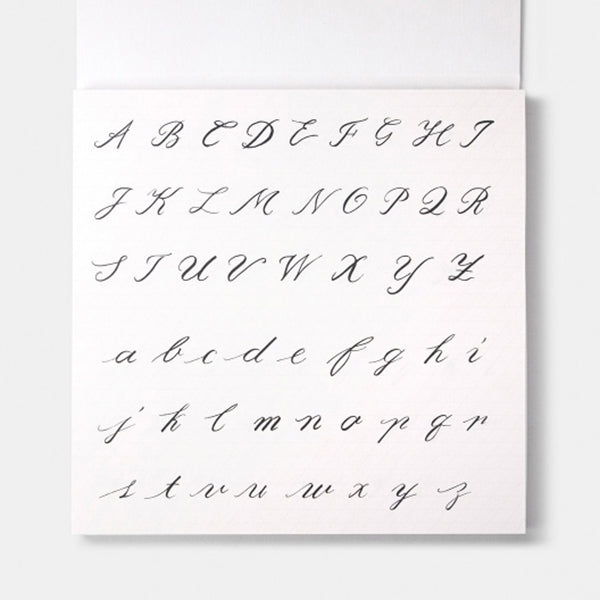 A B C D E F G H I
J K L M N O P Q R
S T U V W X Y Z
a b c d e f g h i
j k l m n o p q r
s t v u w x y z